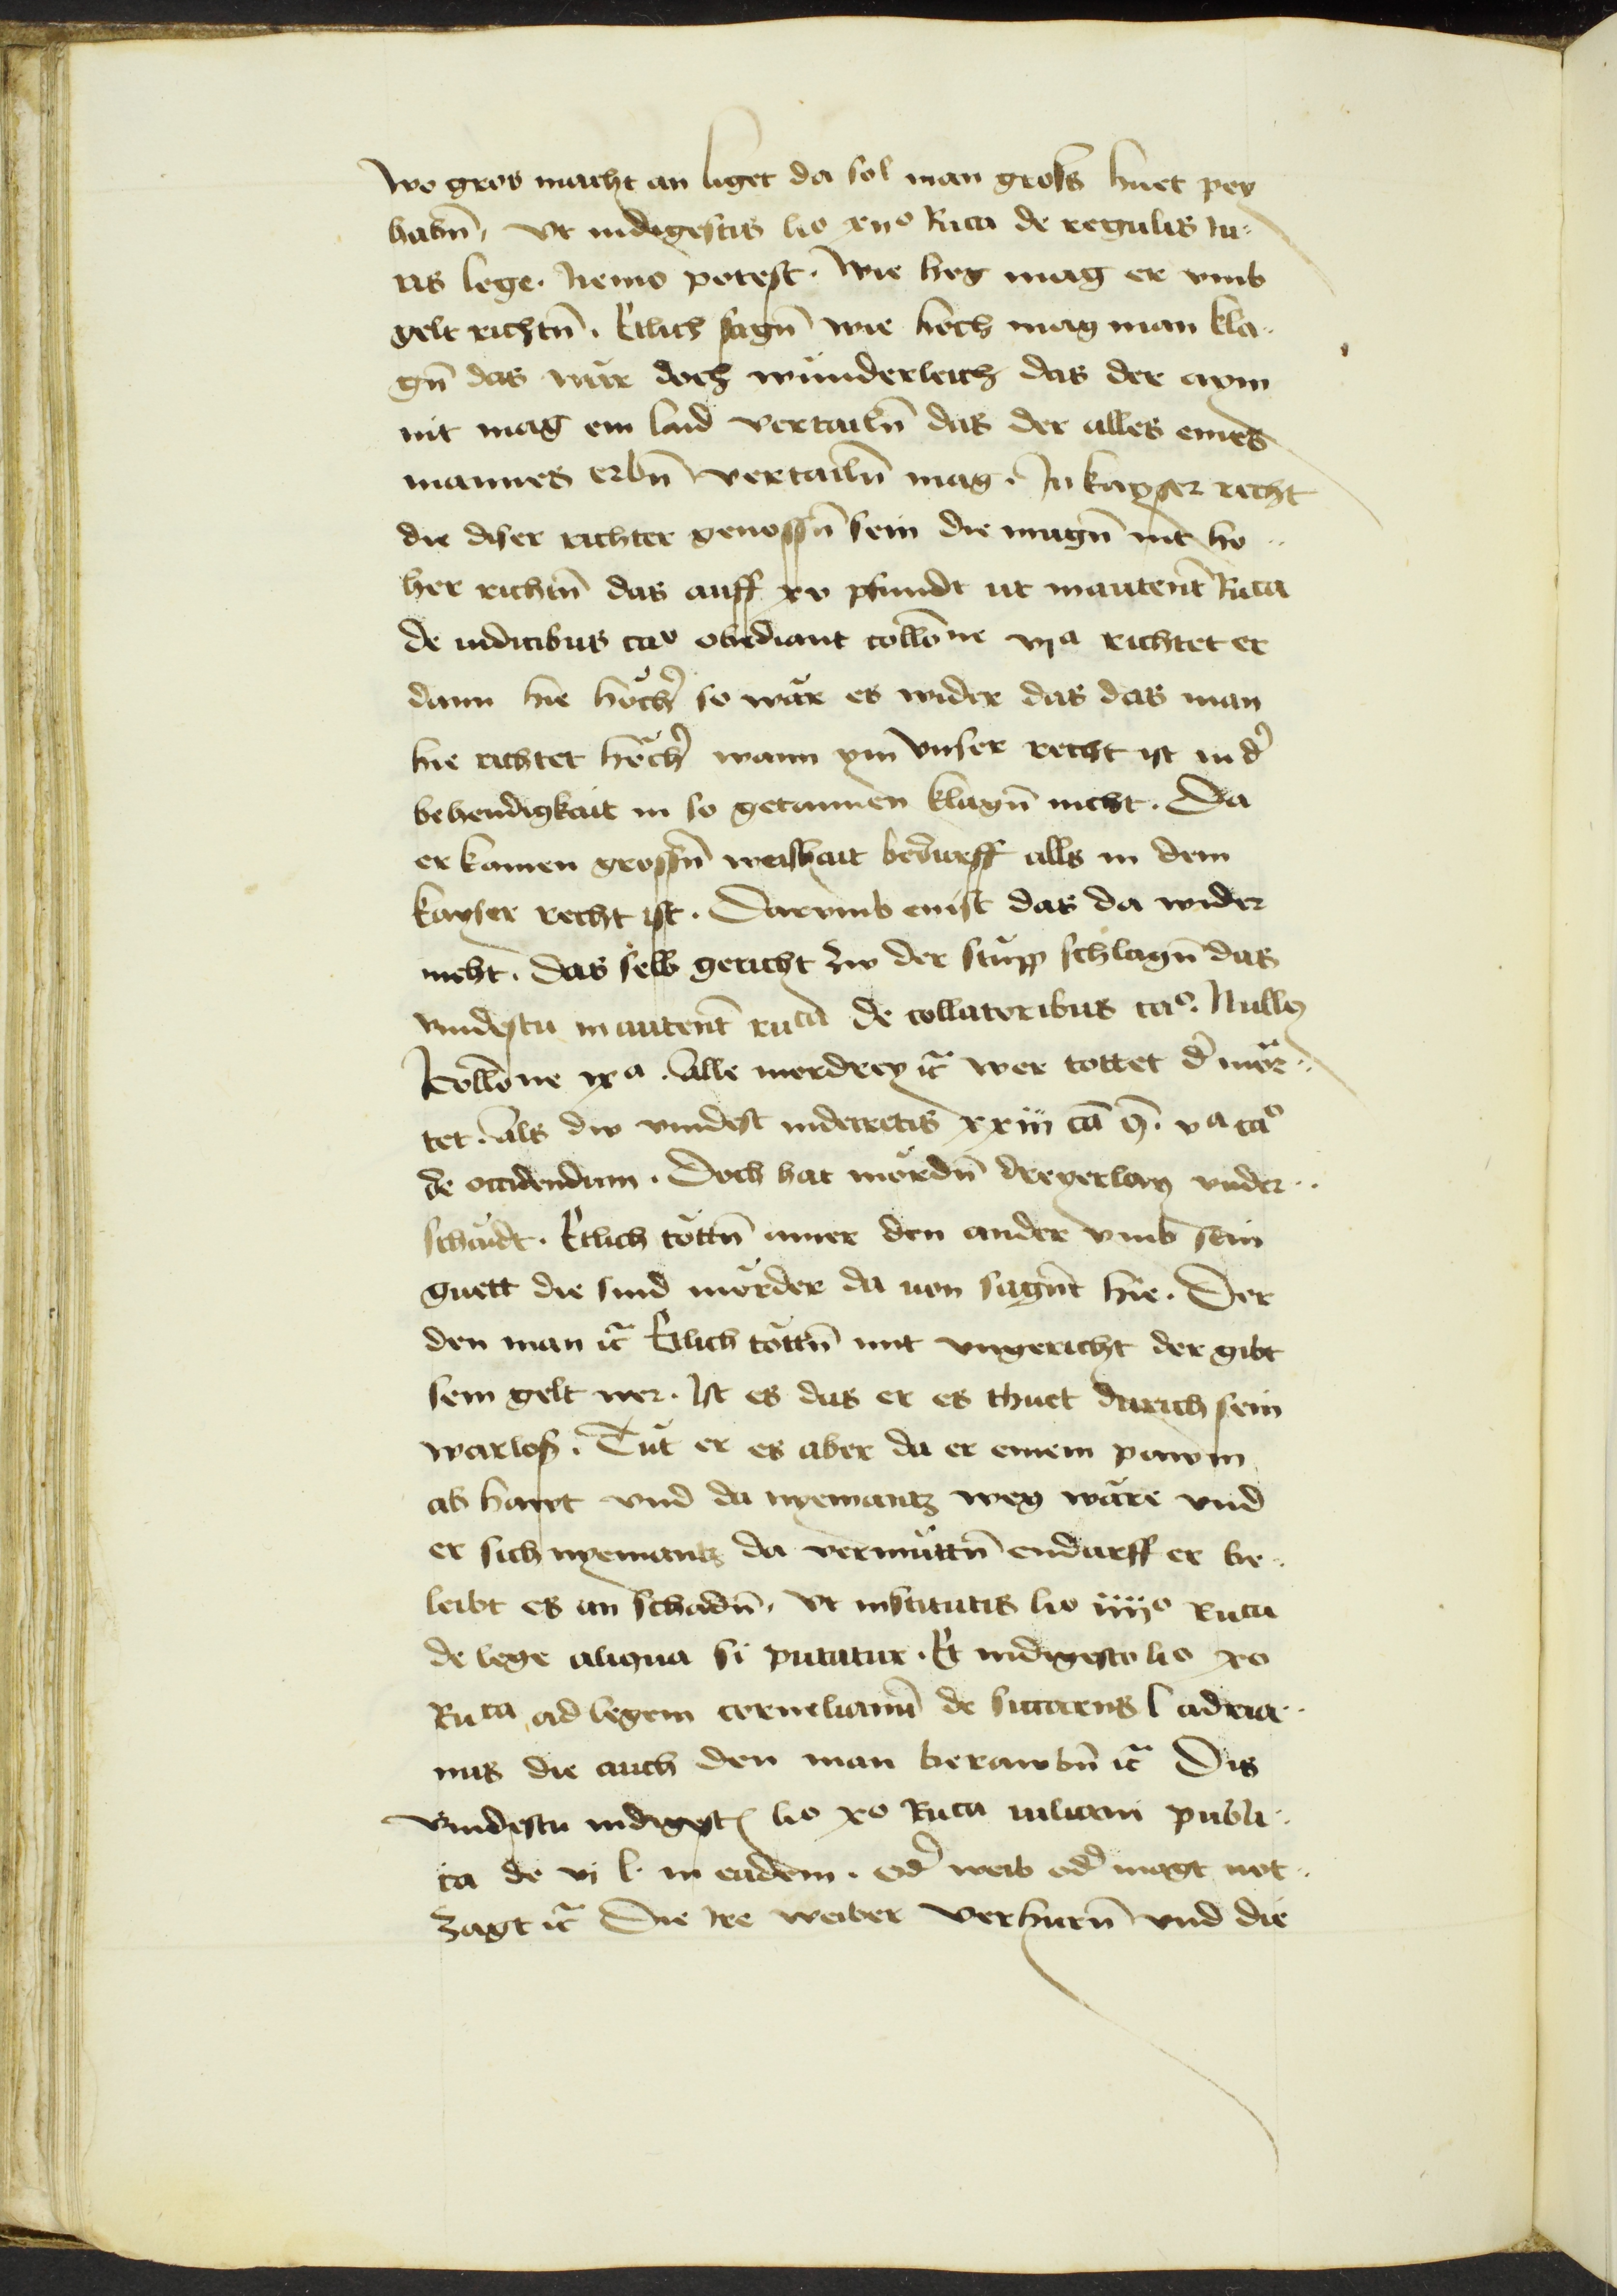 wo gros macht an liget da sol man groß huet pey
habn̄, vt indigestis lio xiio Rica de regulis Iu⸗
ris lege. Nemo potest. Wie hog mag er vmb
gelt richtn̄. Etlich sagn̄ wie hoch mag man kla⸗
gn̄ das wär doch wunderleich das der aym
nit mag ein laid vertailn̄ das der alles eines
mannes erbn̄ vertailn̄ mag. In kayser recht
die diser richter genossn̄ sein die magn̄ nit ho⸗
her richtn̄ das auff xv pfundt ut in autent̄ Rica
de iudicibus cao obediant collōne vja richtet er
dann hie höcher so wär es wider das das man
hie richtet höcher wann ym vnser recht ist in der
behendigkait in so getannen klagn̄ nicht. Da
er kainen grossn̄ weishait bedarff alls in dem
kayser recht ist. Darvmb enist das da wider
nicht. das selb gericht zw der stüpp schlagn̄ das
vindestu in autent̄ rica de collatoribus cao. Nullo
Kollōne ixa. Alle mordrey ic̄ wer tottet der mör⸗
tet. Als dw vindest indecretis xxiij cā q̄. va cao
de occidendum. Doch hat mördn̄ dreyerlay vnder⸗
schaidt. Etlich töttn̄ ainer den ander vmb sein
guett die sind mörder da von sagnt hie. Der
den man ic̄ Etlich töttn̄ mit vngericht der gibt
sein gelt wer. Ist es das er es thuet durich sein
warlos. Tut er es aber da er einem pawm
ab hawt vnd da nyemantz weg wäre vnd
er sich nyemantz da vermüttn̄ endarff er be⸗
leibt es an schadn̄. Vt institutis lio iiijo Rica
de lege aliqua si putatur. Et indigesto lio xo
Rica ad legem cornelianī de siccarijs l adria⸗
nus die auch den man berawbn̄ ic̄ Dis
vindestu indigest̄ lio xo Rica iuliam publi⸗
ca de vi l. in eadem. oder weib oder magt not⸗
zagt ic̄ Die Ire weiber verhurn̄ vnd die